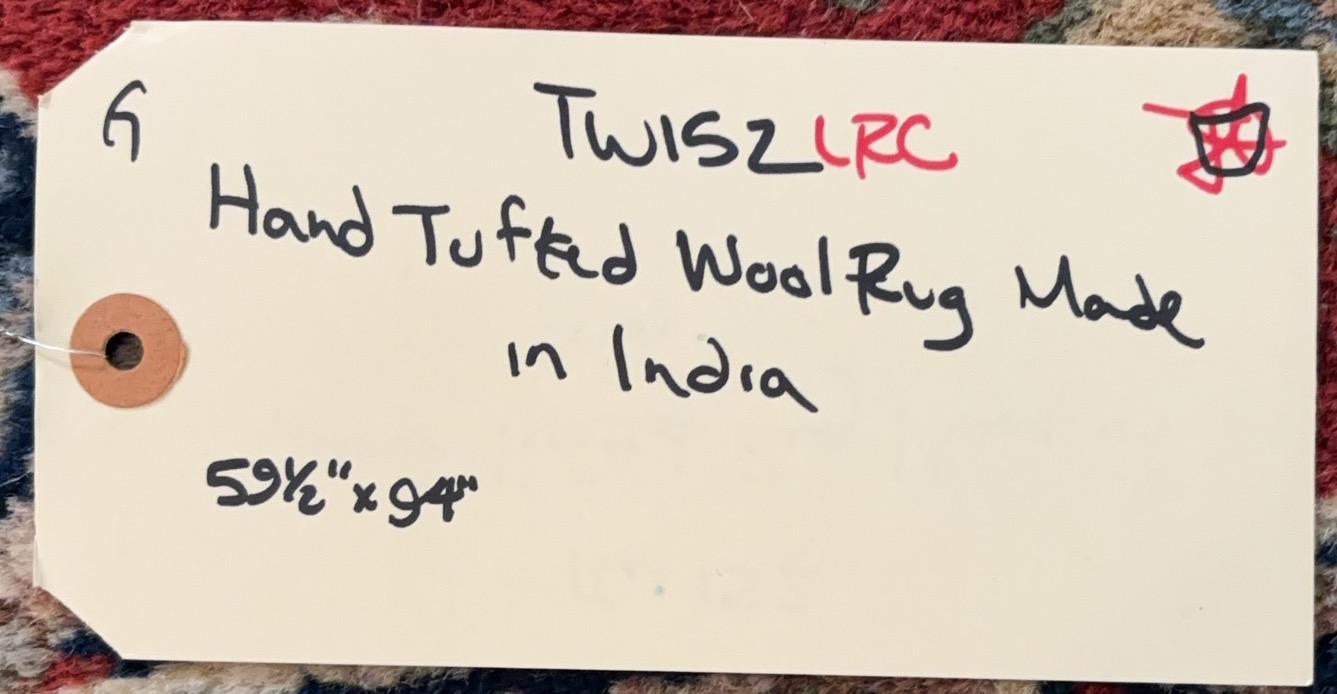 G
TW152LRC
Hand Tufted Wool Rug Made
in India
59½" x 94"